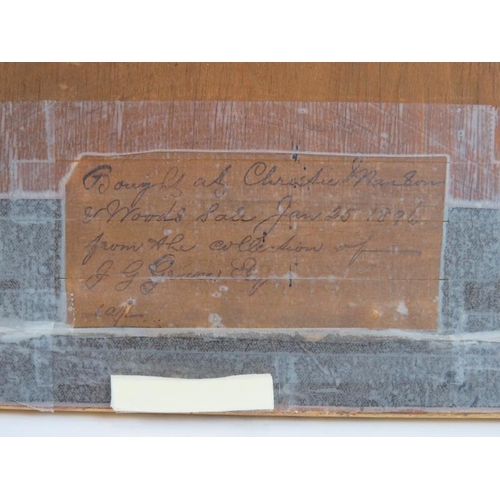 Bought at Christie Manson
& Woods Sale Jan 25 1896
from the collection of
J G Esq